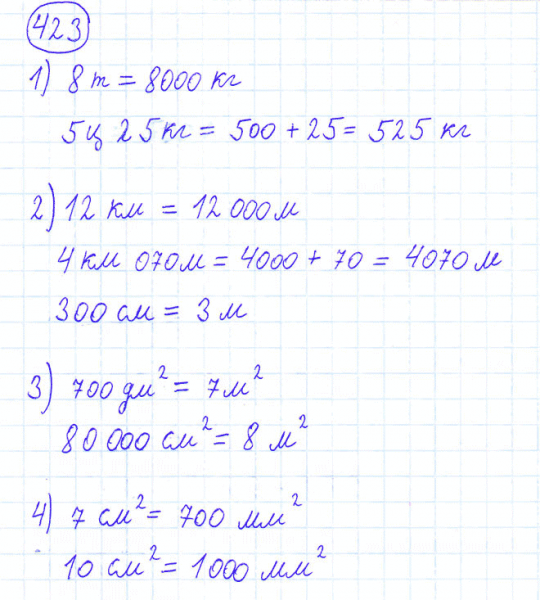 423
1) 8 т = 8000 кг
5ц 25кг = 500 + 25 = 525 кг
2) 12 км = 12 000м
4 км 070м = 4000 + 70 = 4070 м
300 см = 3 м
3) 700 дм² = 7м²
80 000 см² = 8 м²
4) 7 см² = 700 мм²
10 см² = 1000 мм²